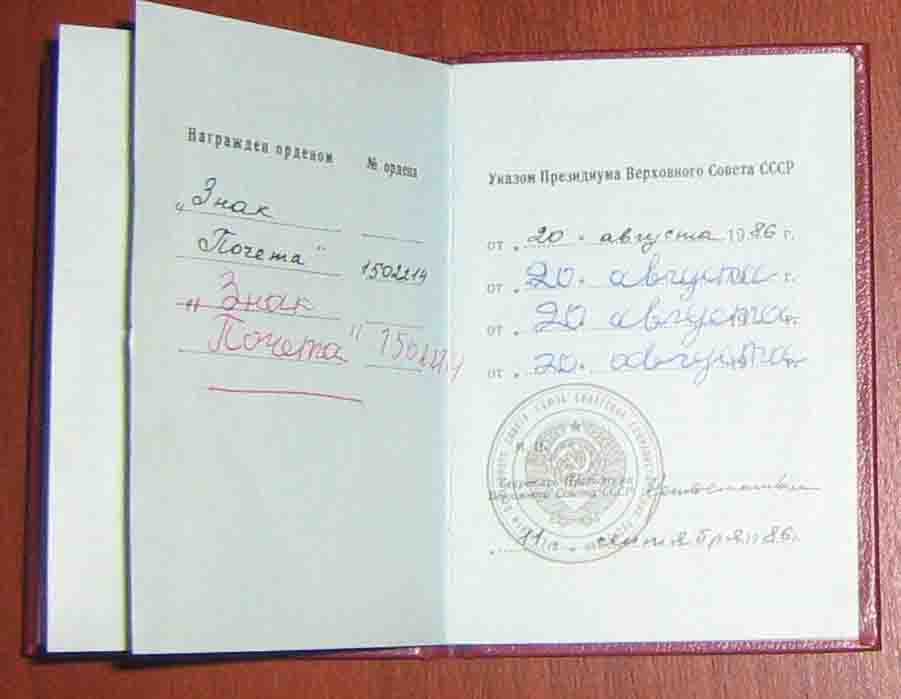 Награжден орденом № ордена
„Знак
Почета“ 1502214
„Знак
Почета“ 1502214
Указом Президиума Верховного Совета СССР
от „20“ августа 1986 г.
от „20 августа г.
от „20 августа г.
от „20. августа г.
Секретарь Президиума
Верховного Совета СССР
сентября 1986 г.